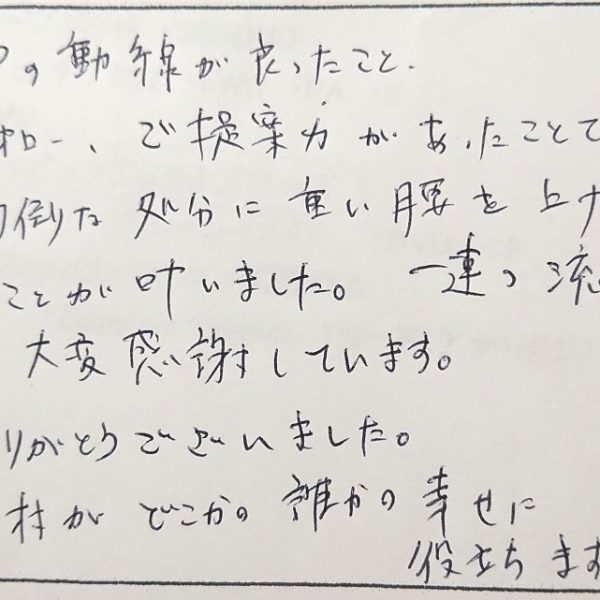 の動線が良ったこと.
ー、ご提案力があったことで
倒な処分に重い腰を上げ
ことが叶いました。一連の流
大変感謝しています。
りがとうございました。
材がどこかの誰かの幸せに
役立ちます